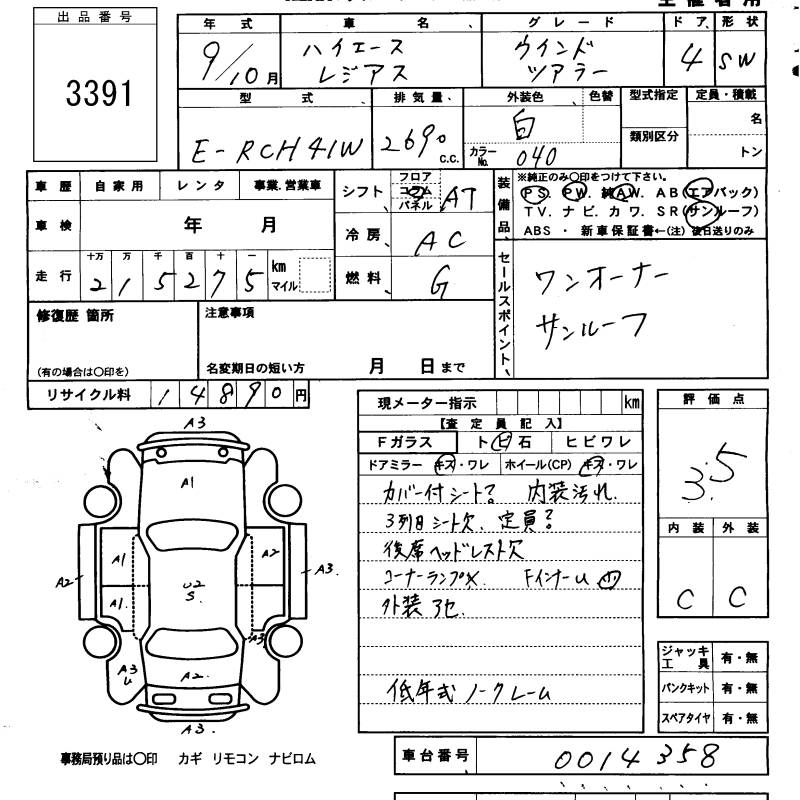 出品番号
3391
年式
9/10月
車名
ハイエース
レジアス
グレード
ウインド
ツアラー
ドア
4
形状
SW
型式
E-RCH41W
排気量
2690
C.C.
外装色
白
色替
カラーNo.
040
型式指定
類別区分
定員・積載
名
トン
車歴
自家用
レンタ
事業.営業車
車検
年 月
走行
十万 万 千 百 十 一
2 1 5 2 7 5
km
マイル
シフト
フロア
コラム
パネル
AT
冷房
AC
燃料
G
装備品
※純正のみ○印をつけて下さい。
PS. PW. 純AW. AB(エアバック)
TV. ナビ. カワ. SR(サンルーフ)
ABS ・ 新車保証書←(注) 後日送りのみ
セールスポイント
ワンオーナー
サンルーフ
修復歴 箇所
(有の場合は○印を)
注意事項
名変期日の短い方 月 日まで
リサイクル料
14890円
現メーター指示
km
【査定員記入】
Fガラス
トビ石
ヒビワレ
ドアミラー
キズ・ワレ
ホイール(CP)
キズ・ワレ
カバー付シート? 内装汚れ.
3列目シート欠、定員?
後席ヘッドレスト欠
コーナーランプX. FインナーU
外装アセ
低年式ノークレーム
評価点
3.5
内装
外装
C
C
ジャッキ工具
有・無
パンクキット
有・無
スペアタイヤ
有・無
A3
A1
A1
A2
A2
U2
S.
A3.
A1.
A3
A3
U
A2.
A3.
事務局預り品は○印 カギ リモコン ナビロム
車台番号
0014358